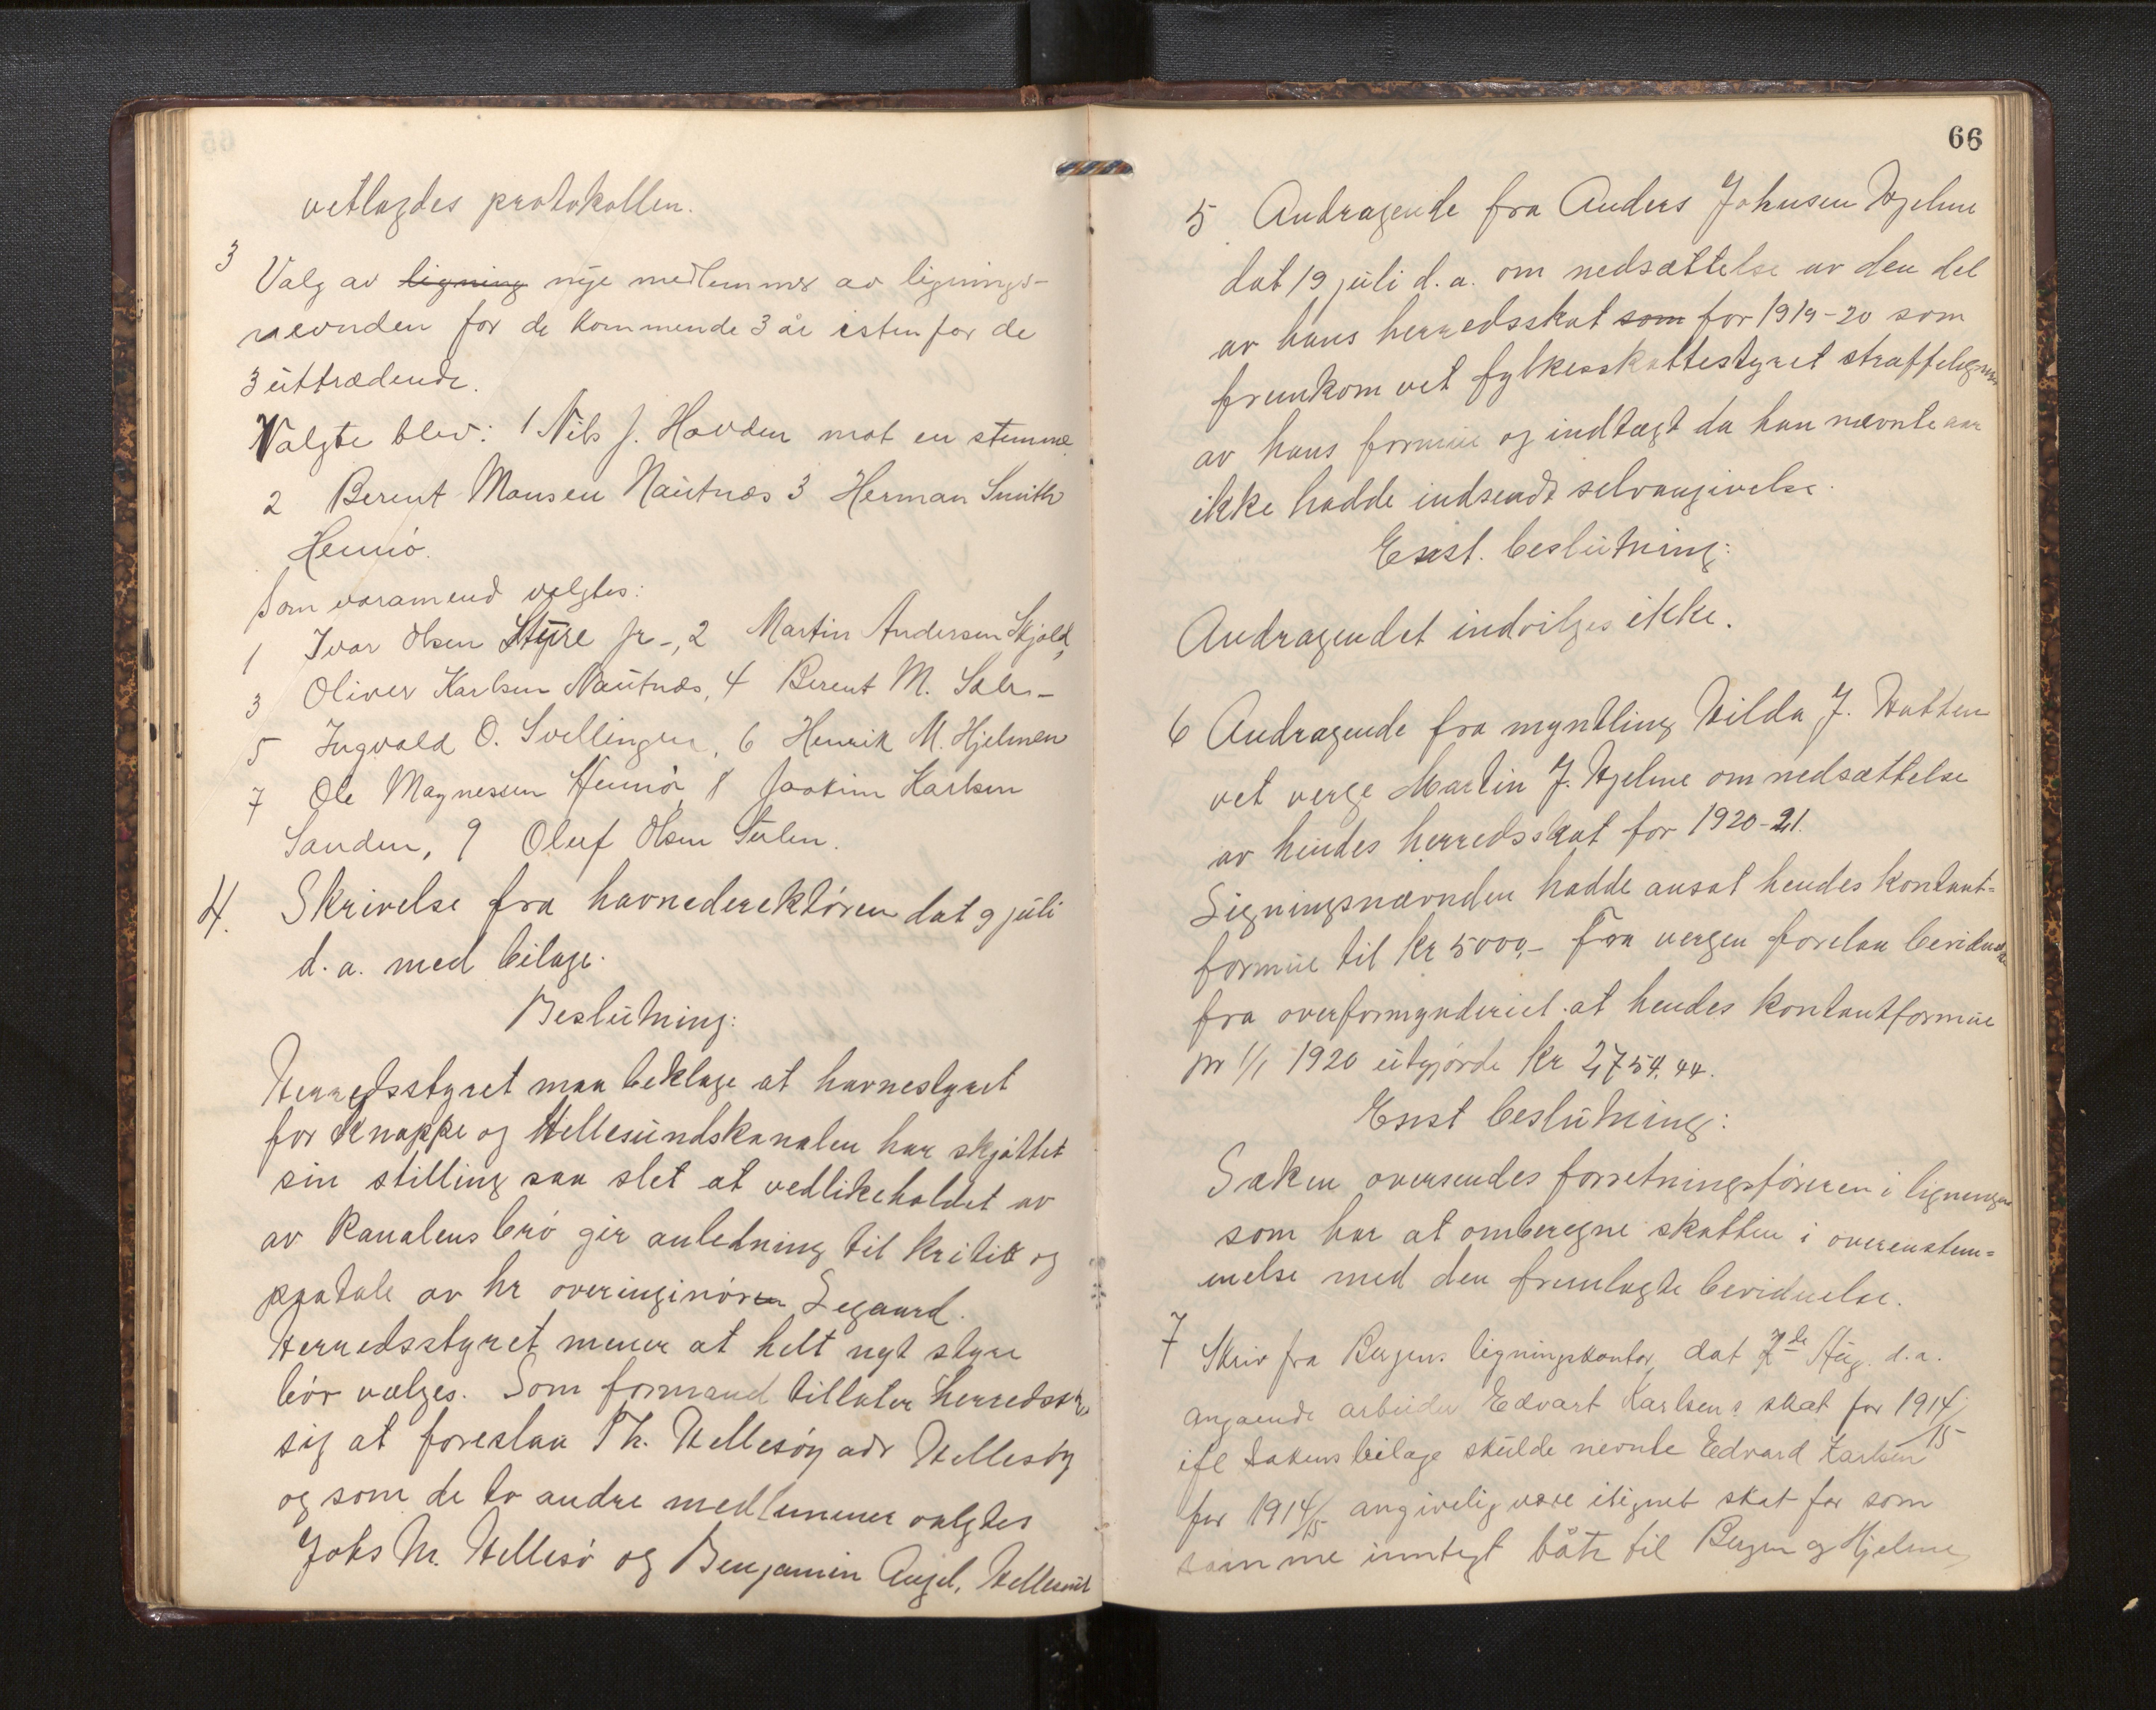 vetlagdes protokollen.
3 Valg av ligning nye medlemmer av lignings-
nevnden for de kommende 3 år istenfor de
3 uttrædende.
Valgte blev: 1 Nils J. Hovden mot en stemme
2 Berent Monsen Nautnes 3 Herman Smith
Hernö.
Som varamend valgtes:
1 Ivar Olsen Styre jr-, 2 Martin Andersen Skjold,
3 Oliver Karlsen Nautnes, 4 Berent M. Sæle-
5 Ingvald O. Svellingen, 6 Henrik M. Hjelmen
7 Ole Magnessen Hernö, 8 Joakim Karlsen
Sanden, 9 Oluf Olsen Sulen.
4. Skrivelse fra havnederektøren dat 9 juli
d. a. med bilage.
Beslutning:
Herredsstyret maa beklage at havnestyret
for Knappe og Hellesundskanalen har skjøttet
sin stilling saa slet at vedlikeholdet av
av kanalens brö gir anledning til kritik og
paatale av hr overinginören Segaard.
Herredsstyret mener at helt nyt styre
bör vælges. Som formand tillater herredsst
sig at foreslaa Th. Hellesöy adr Hellesöy
og som de to andre medlemmer valgtes
Johs M. Hellesö og Benjamin Angel, Hellesund
66
5 Andragende fra Anders Johnsen Hjelme
dat 19 juli d. a. om nedsættelse av den del
av hans herredsskat som for 1919-20 som
fremkom vet fylkesskattestyret straffelign
av hans formue og indtægt da han nævnte aar
ikke hadde indsendt selvangivelse.
Enst. beslutning:
Andragendet indvilges ikke.
6 Andragende fra myntling Hilda J. Hatten
vet verge Martin J. Hjelme om nedsættelse
av hendes herredsskat for 1920-21.
Ligningsnævnden hadde ansat hendes kontant-
formue til kr 5000,- Fra vergen forelaa bevidnelse
fra overformynderiet at hendes kontantformue
pr 1/1 1920 utgjörde kr 2754,44.
Enst beslutning:
Saken oversendes forretningsföreren i ligningen
som har at omberegne skatten i overenstem-
melse med den fremlagte bevidnelse.
7 Skriv fra Bergens ligningskontor dat 2de Aug. d. a.
angaende arbeider Edvart Karlsens skat for 1914/15
ifl sakens bilage skulde nevnte Edvard Karlsen
for 1914/15 angivelig være ilignet skat for som
samme inntegt båte til Bergen og Hjelme,